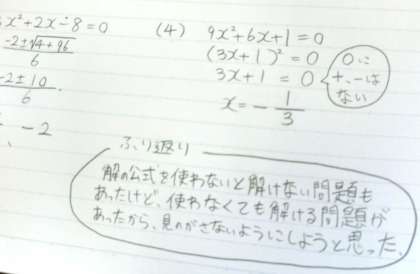 x²+2x-8=0
-2±√4+96
6
-2±10
6
-2
(4) 9x²+6x+1=0
(3x+1)²=0
3x+1=0
x=-1/3
0に
+、-は
ない
ふり返り
解の公式を使わないと解けない問題も
あったけど、使わなくても解ける問題が
あったから、見のがさないようにしようと思った。